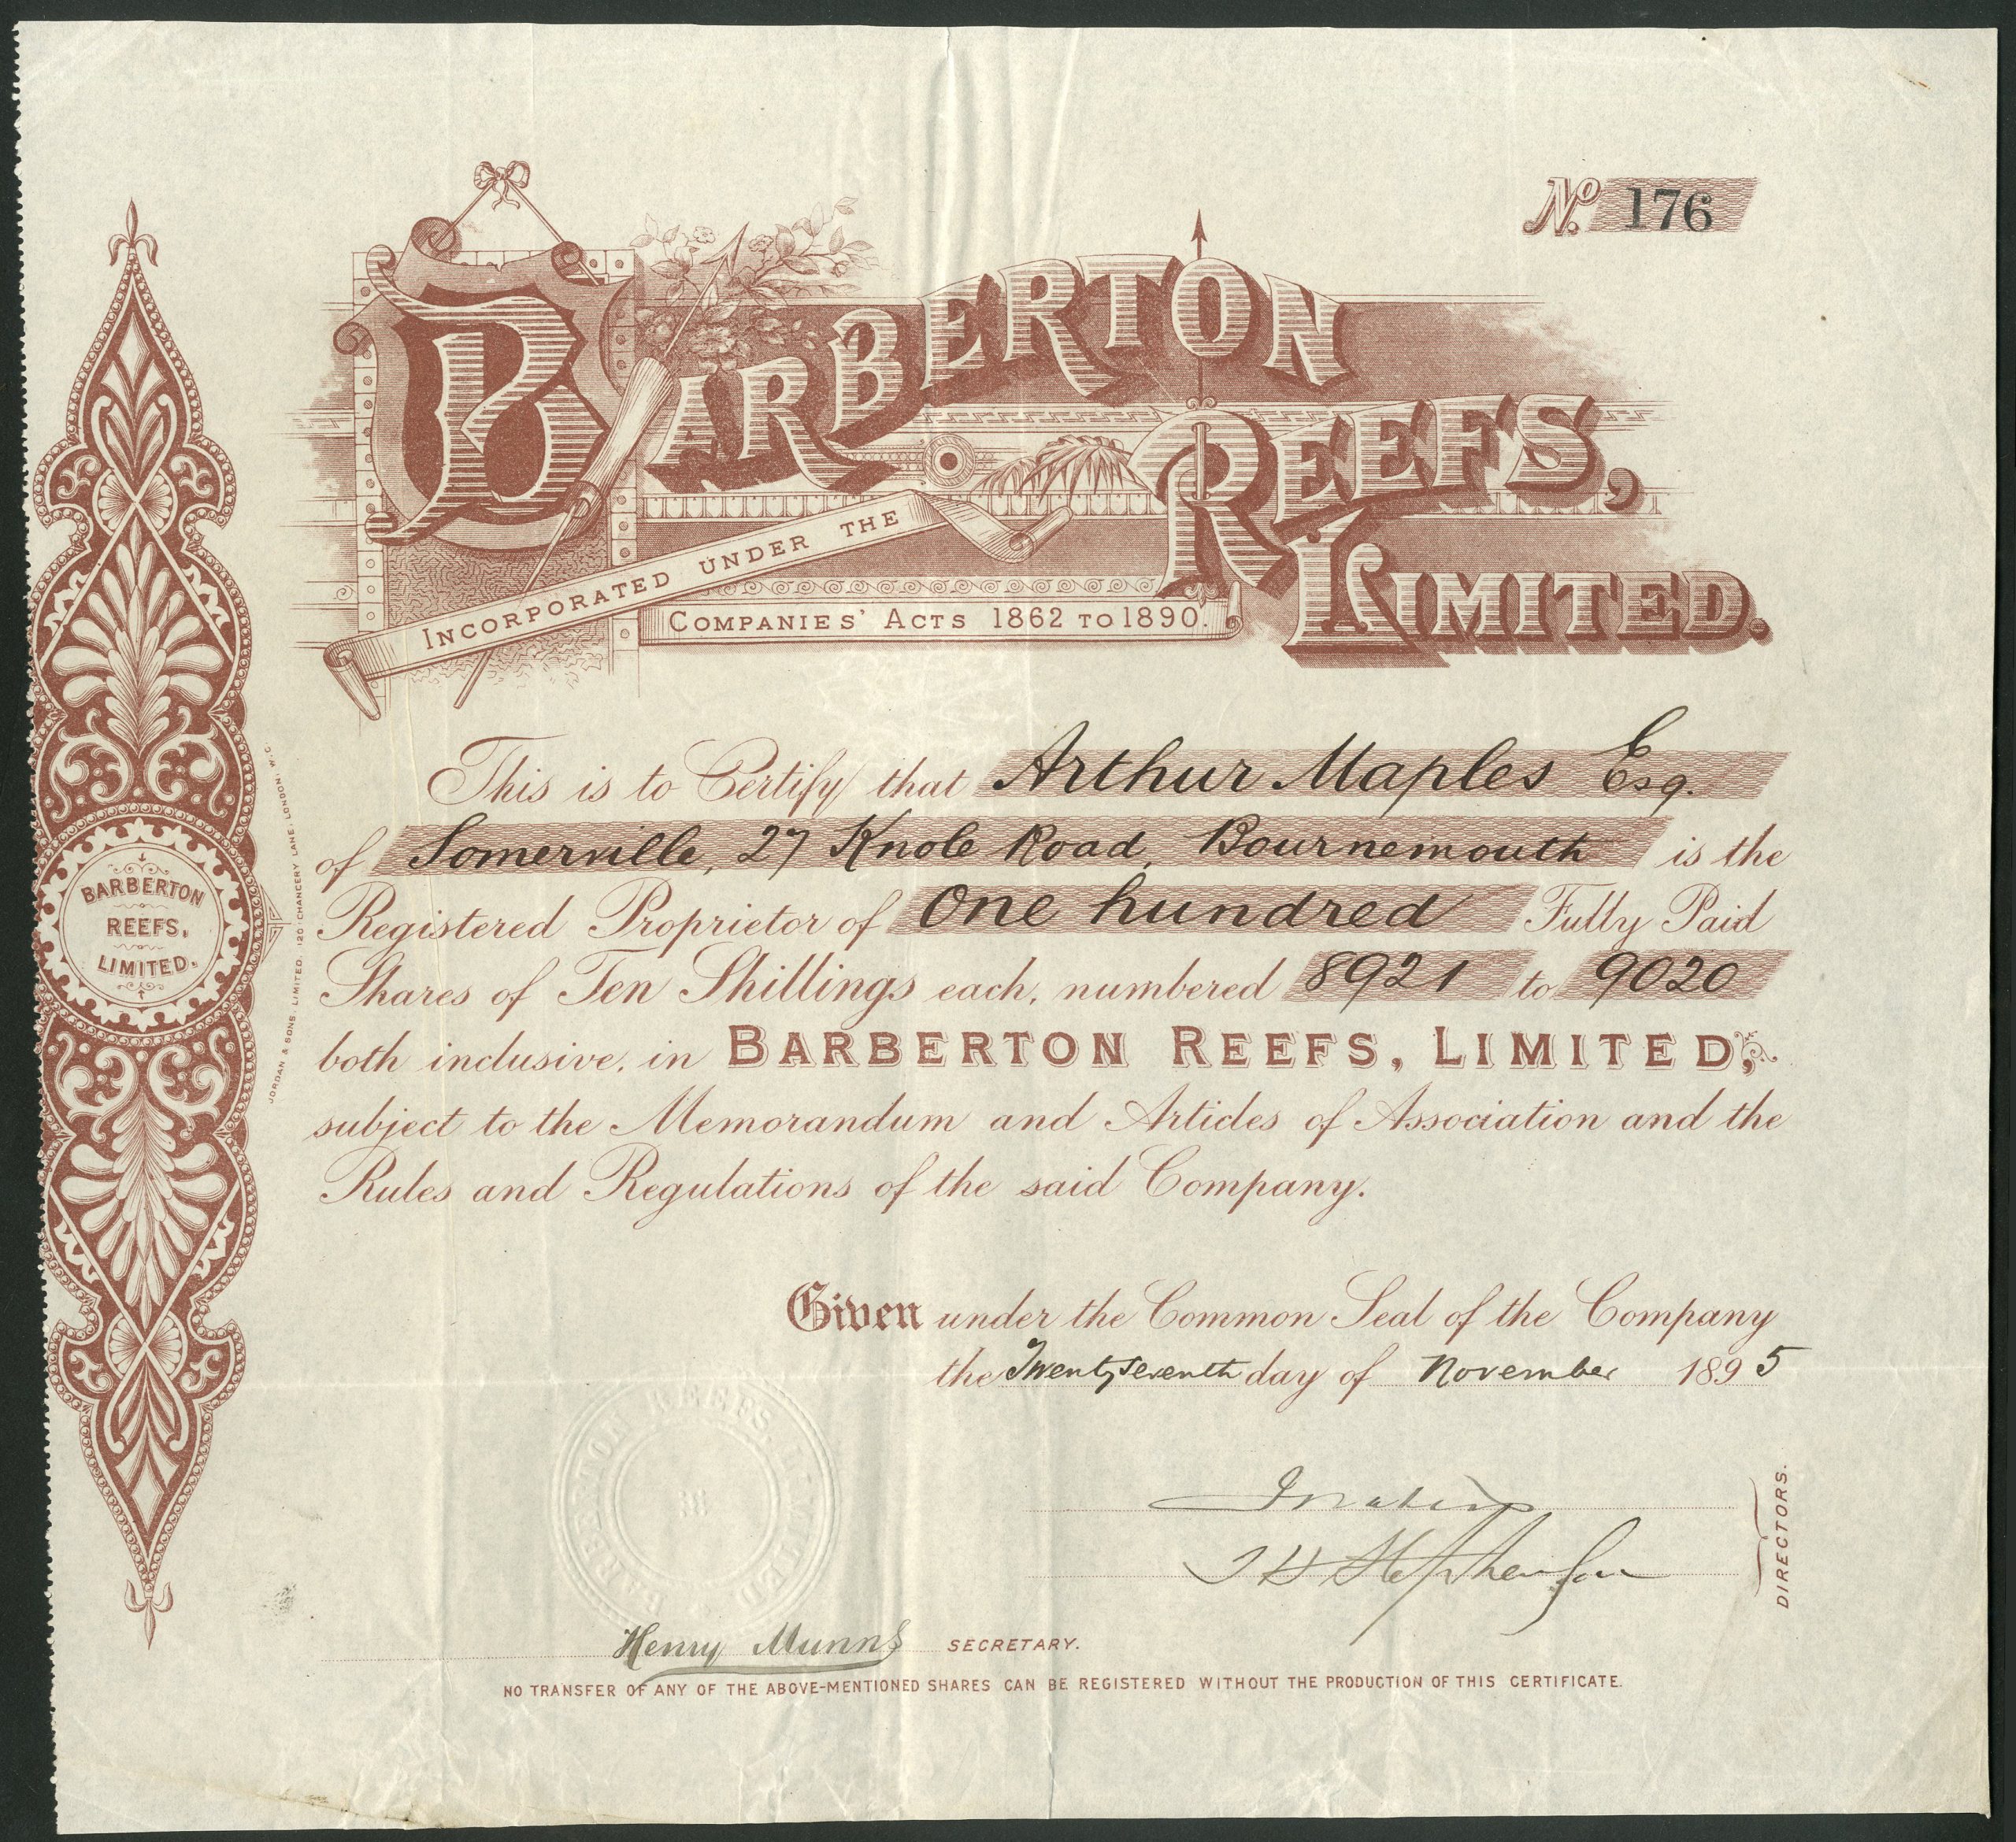 No. 176
BARBERTON
REEFS,
LIMITED.
INCORPORATED UNDER THE
COMPANIES' ACTS 1862 TO 1890.
This is to Certify that Arthur Maples Esq.
of Somerville, 27 Knole Road, Bournemouth is the
Registered Proprietor of One hundred Fully Paid
Shares of Ten Shillings each, numbered 8921 to 9020
both inclusive, in BARBERTON REEFS, LIMITED,
subject to the Memorandum and Articles of Association and the
Rules and Regulations of the said Company.
Given under the Common Seal of the Company
the Twenty seventh day of November 1895
T H Stephenson
DIRECTORS.
Henry Munns SECRETARY.
NO TRANSFER OF ANY OF THE ABOVE-MENTIONED SHARES CAN BE REGISTERED WITHOUT THE PRODUCTION OF THIS CERTIFICATE.
BARBERTON
REEFS,
LIMITED.
JORDAN & SONS, LIMITED, 120 CHANCERY LANE, LONDON, W.C.
BARBERTON REEFS, LIMITED